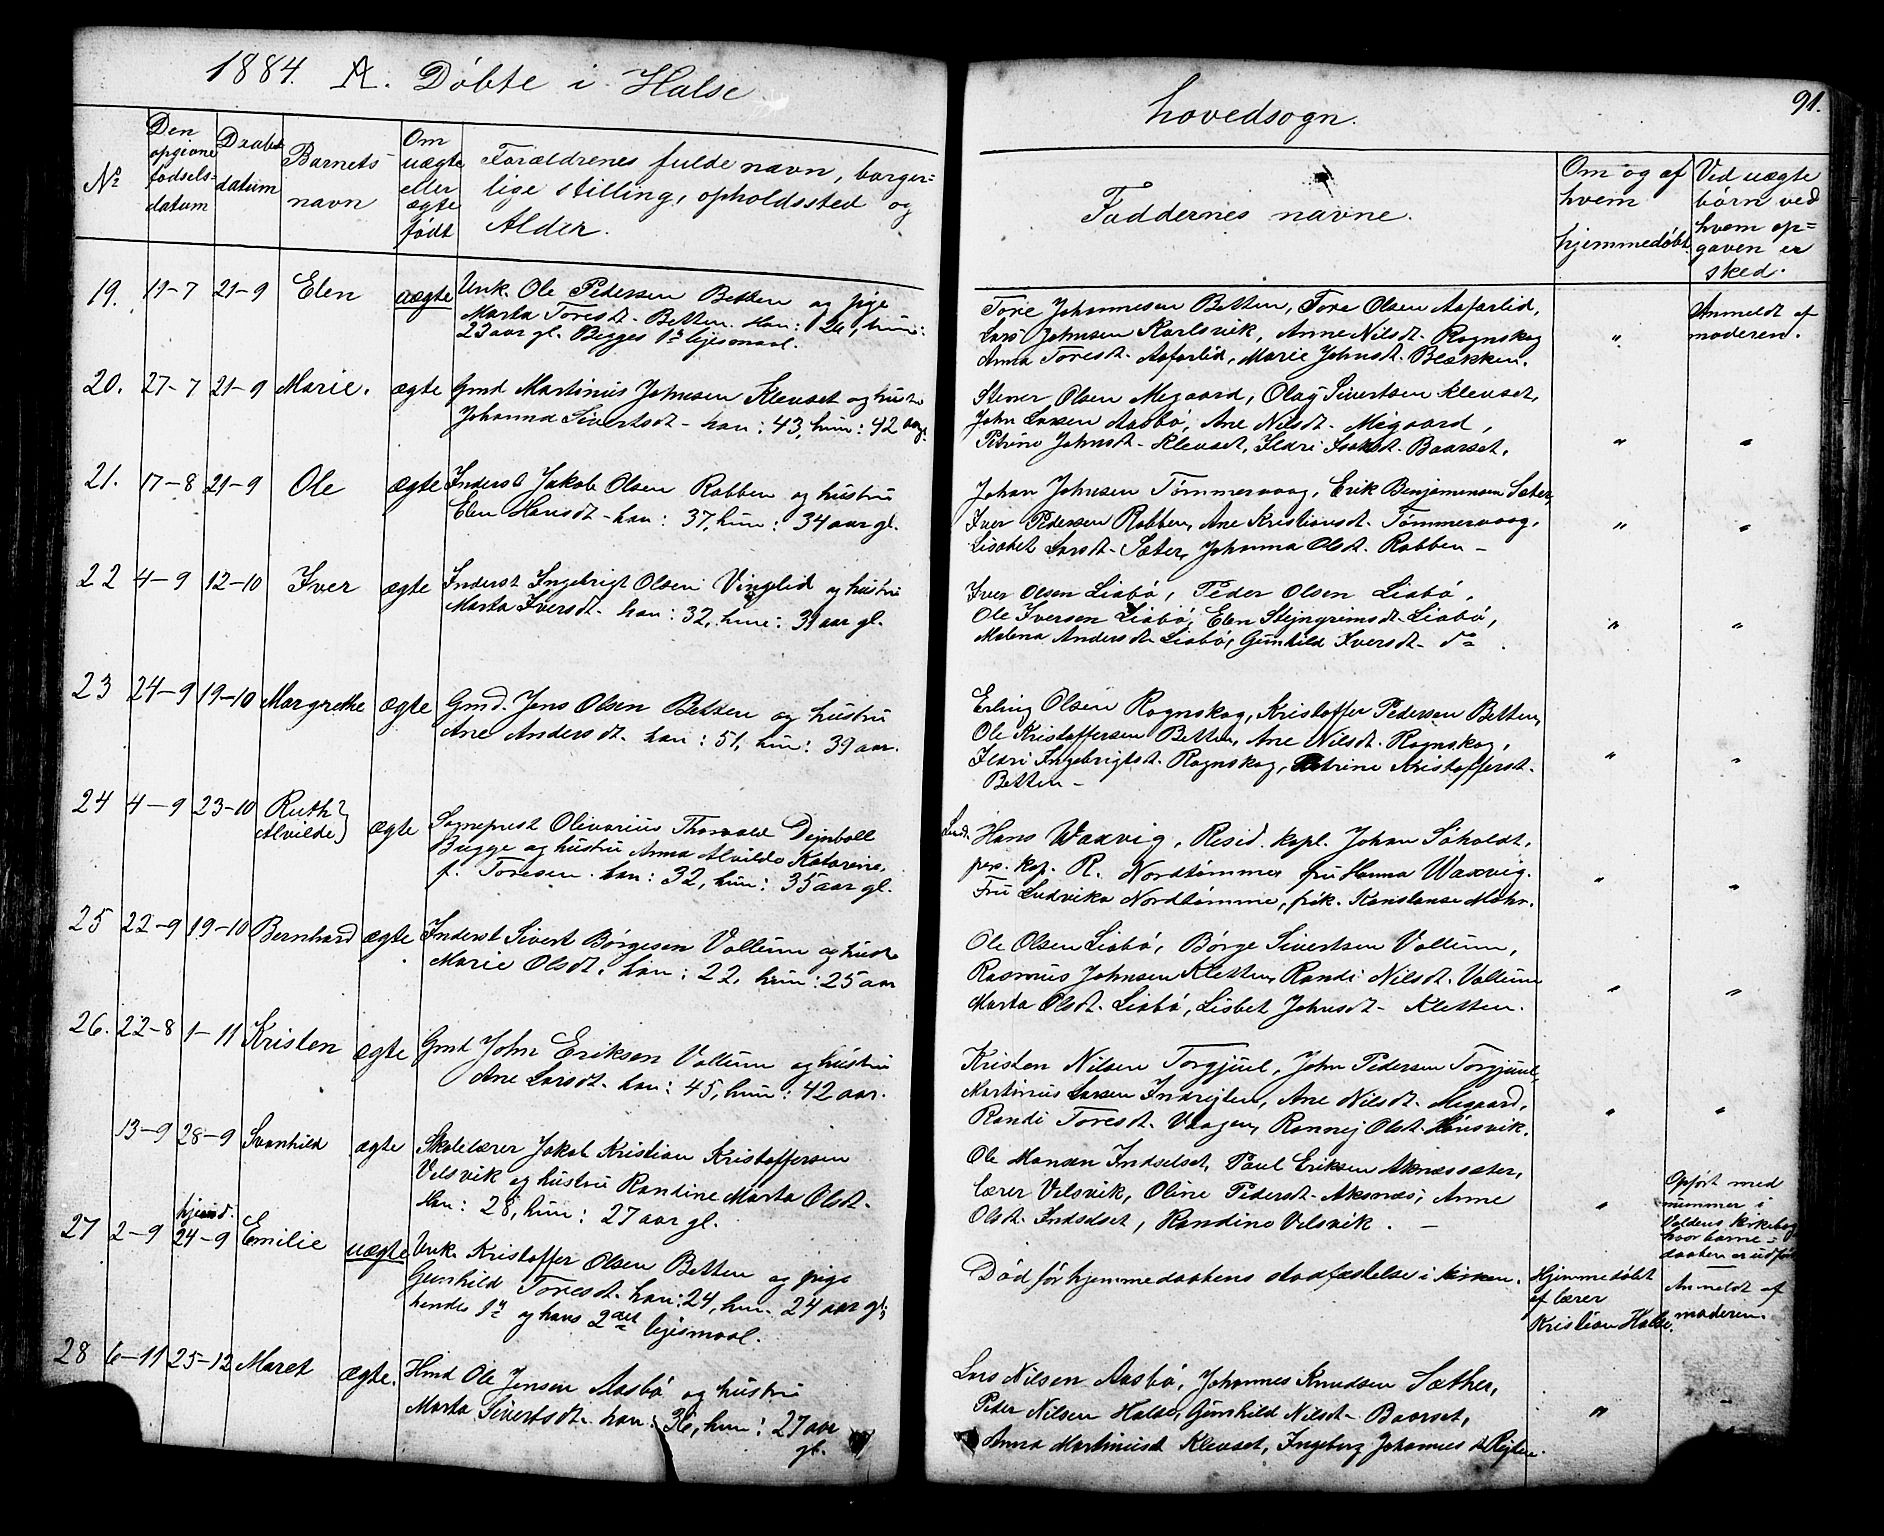 1884. A. Döbte i Halse
hovedsogn.
91.
No
Den opgivne fødsels-datum
Daabs datum
Barnets navn
Om uægte eller ægte født
Forældrenes fulde navn, borger=
lige stilling, opholdssted og
Alder.
Faddernes navne.
Om og af hvem hjemmedøbt
Ved uægte børn ved hvem op=gaven er sked.
19. 19-7 21-9 Elen uægte Unk. Ole Pedersen Betten og pige
Marta Toresdt. Betten. Han: 24, hun:
23 aar gl. Begges 1ste lejesmaal.
Tore Johannesen Betten, Tore Olsen Aafarlid,
Lars Johnsen Karlsvik, Anne Nilsdt. Rognskog
Anna Toresdt. Aafarlid, Marie Johnsdt. Blækken.
"
Anmeldt af
moderen.
20. 27-7 21-9 Marie. ægte Gmd Martinus Johnsen Klevset og hustr
Johanna Sivertsdt - han: 43, hun: 42 aar gl.
Stener Olsen Megaard, Olaf Sivertsen Klevset,
John Larsen Aasbø, Ane Nilsdt. Megaard,
Petrine Johnsdt. Klevset, Ildri Isaksdt. Baarset.
" "
21. 17-8 21-9 Ole ægte Inderst Jakob Olsen Rabben og hustru
Elen Hansdt - han: 37, hun: 34 aar gl.
Johan Johnsen Tømmervaag, Erik Benjaminsen Sæter,
Iver Pedersen Rabben, Ane Kristiansdt. Tømmervaag,
Lisabet Larsdt. Sæter, Johanna Olsdt. Rabben -
" "
22 4-9 12-10 Iver ægte Inderst Ingebrigt Olsen Vinglid og hustru
Marta Iversdt. han: 32, hun: 39 aar gl.
Iver Olsen Liabø, Peder Olsen Liabø,
Ole Iversen Liabø, Elen Stejngrimsdt. Liabø,
Malena Andersdt. Liabø, Gunhild Iversdt. do
" "
23 24-9 19-10 Margrethe ægte Gmd. Jens Olsen Betten og hustru
Ane Andersdt. han: 51, hun: 39 aar.
Erling Olsen Rognskog, Kristoffer Pedersen Betten,
Ole Kristoffersen Betten, Ane Nilsdt. Rognskog,
Ildri Ingebrigtsdt. Rognskog, Petrine Kristoffersdt.
Betten -
" "
24 4-9 23-10 Ruth Alvilde ægte Sogneprest Olivarius Thorvald Dejnboll
Bugge og hustru Anna Alvilde Katarine,
f. Toresen. han: 32, hun: 35 aar gl.
Hans Waxvig, Resid. kapl. Johan Søholdt,
pers. kap. R. Nordtømme, fru Hanna Waxvig.
Fru Ludvika Nordtømme, frøk. Konstanse Mohr.
" "
25 22-9 19-10 Bernhard ægte Inderst Sivert Børgesen Vallum og hustr
Marie Olsdt. han: 22, hun: 25 aar
Ole Olsen Liabø, Børge Sivertsen Vallum,
Rasmus Johnsen Kletten, Randi Nilsdt. Vallum
Marta Olsdt. Liabø, Lisbet Johnsdt - Kletten.
" "
26. 22-8 1-11 Kristen ægte Gmd John Eriksen Vallum og hustru
Ane Larsdt. han: 45, hun: 42 aar.
Kristen Nilsen Torgjuul, John Pedersen Torgjuul,
Martinus Larsen Indrejten, Ane Nilsdt. Megaard,
Randi Toresdt. Vaagen, Rannej Olsdt. Hønsvik.
" "
13-9 28-9 Svanhild ægte Skolelærer Jakob Kristian Kristoffersen
Velsvik og hustru Randine Marta Olsdt.
Han: 28, hun: 27 aar gl.
Ole Monsen Indsetset, Paul Eriksen Aknæssæter,
lærer Velsvik, Oline Pedersdt. Aksnæs, Anne
Olsdt. Indsetset, Randine Velsvik. -
"
Opført med
nummer i
Valdens kirkebog
hvor barne-
daaben er udført
27 2-9 hjemmd. 24-9 Emilie uægte Unk. Kristoffer Olsen Betten og pige
Gunhild Toresdt. han: 24, hun. 24 aar gl;
hendes 1ste og hans 2det lejesmaal.
Død før hjemmedaabens stadfæstelse i kirken.
Hjemmedøbt
af lærer
Kristian Halse.
Anmeldt af
moderen.
28 6-11 25-12 Maret ægte. Hmd Ole Jensen Aasbø og hustru
Marta Sivertsdt. han: 36, hun: 27 aar
gl.
Lars Nilsen Aasbø, Johannes Knudsen Sæther,
Peder Nilsen Halse, Gunhild Nilsdt - Baarset,
Anna Martinusd Klevset, Ingeborg Johannesd. Rejten.
" "